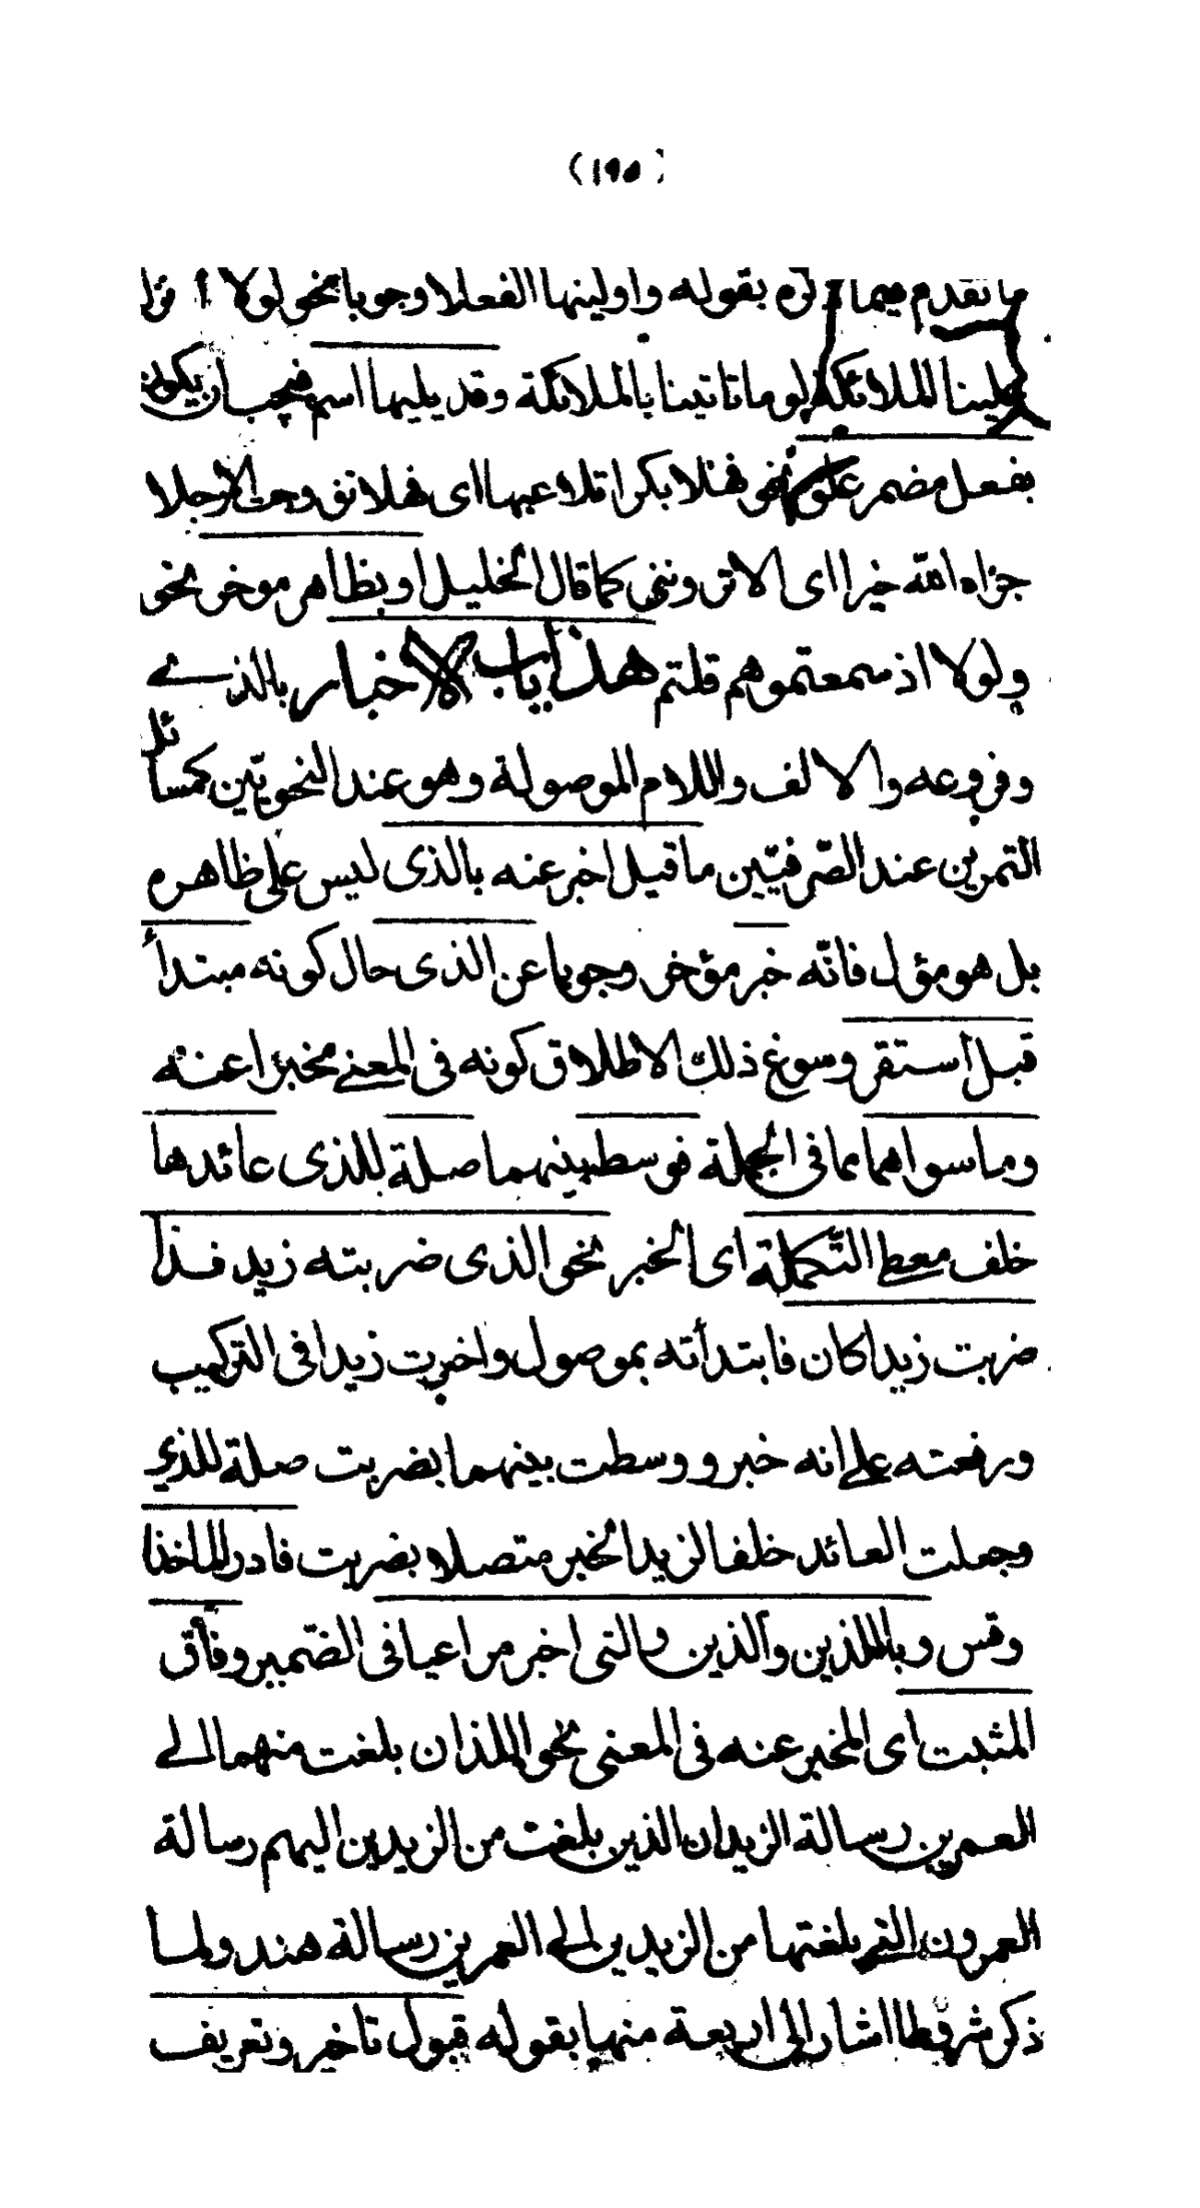 (١٩٥)
ما تقدم فيما ذكره بقوله واولينها الفعلا وجوبا نحو لولا أنزل
علينا الملائكة لوما تاتينا بالملائكة وقد يليها اسم فيجب ان يكون
بفعل مضمر علق نحو فهلا بكرا تلاعبها اى فهلا تزوجت الا رجلا
جزاه الله خيرا اى الا ترونني كما قال الخليل او بظاهر موخر نحو
ولولا اذ سمعتموهم قلتم هذا باب الاخبار بالذے
وفروعه والالف واللام الموصولة وهو عند النحويّين كمسائل
التمرين عند الصّرفيّين ما قيل اخبر عنه بالذى ليس على ظاهره
بل هو مؤول فانّه خبر مؤخر وجوبا عن الذى حال كونه مبتدأ
قبل استقر وسوغ ذلك الاطلاق كونه فى المعنے مخبرا عنه
وما سواهما مما فى الجملة فوسطه بينهما صلة للذى عائدها
خلف معطے التّكملة اى الخبر نحو الذى ضربته زيد فذا
ضربت زيدا كان فابتدأته بموصول واخرت زيدا فى التركيب
ورفعته على انه خبر ووسطت بينهما بضربت صلة للذي
وجعلت العائد خلفا لزيد الخبر متصلا بضربت فادر الماخذا
وقس وباللذين والذين والتى اخبر مراعيا فى الضّمير وفاق
المثبت اى المخبر عنه فى المعنى نحو اللذان بلغت منهما الے
العمرين رسالة الزيدان الذين بلغت من الزيدين اليهم رسالة
العمرون التى بلغتها من الزيدين الى العمرين رسالة هند ولما
ذكر شروطا اشار الى اربعة منها بقوله قبول تاخير وتعريف